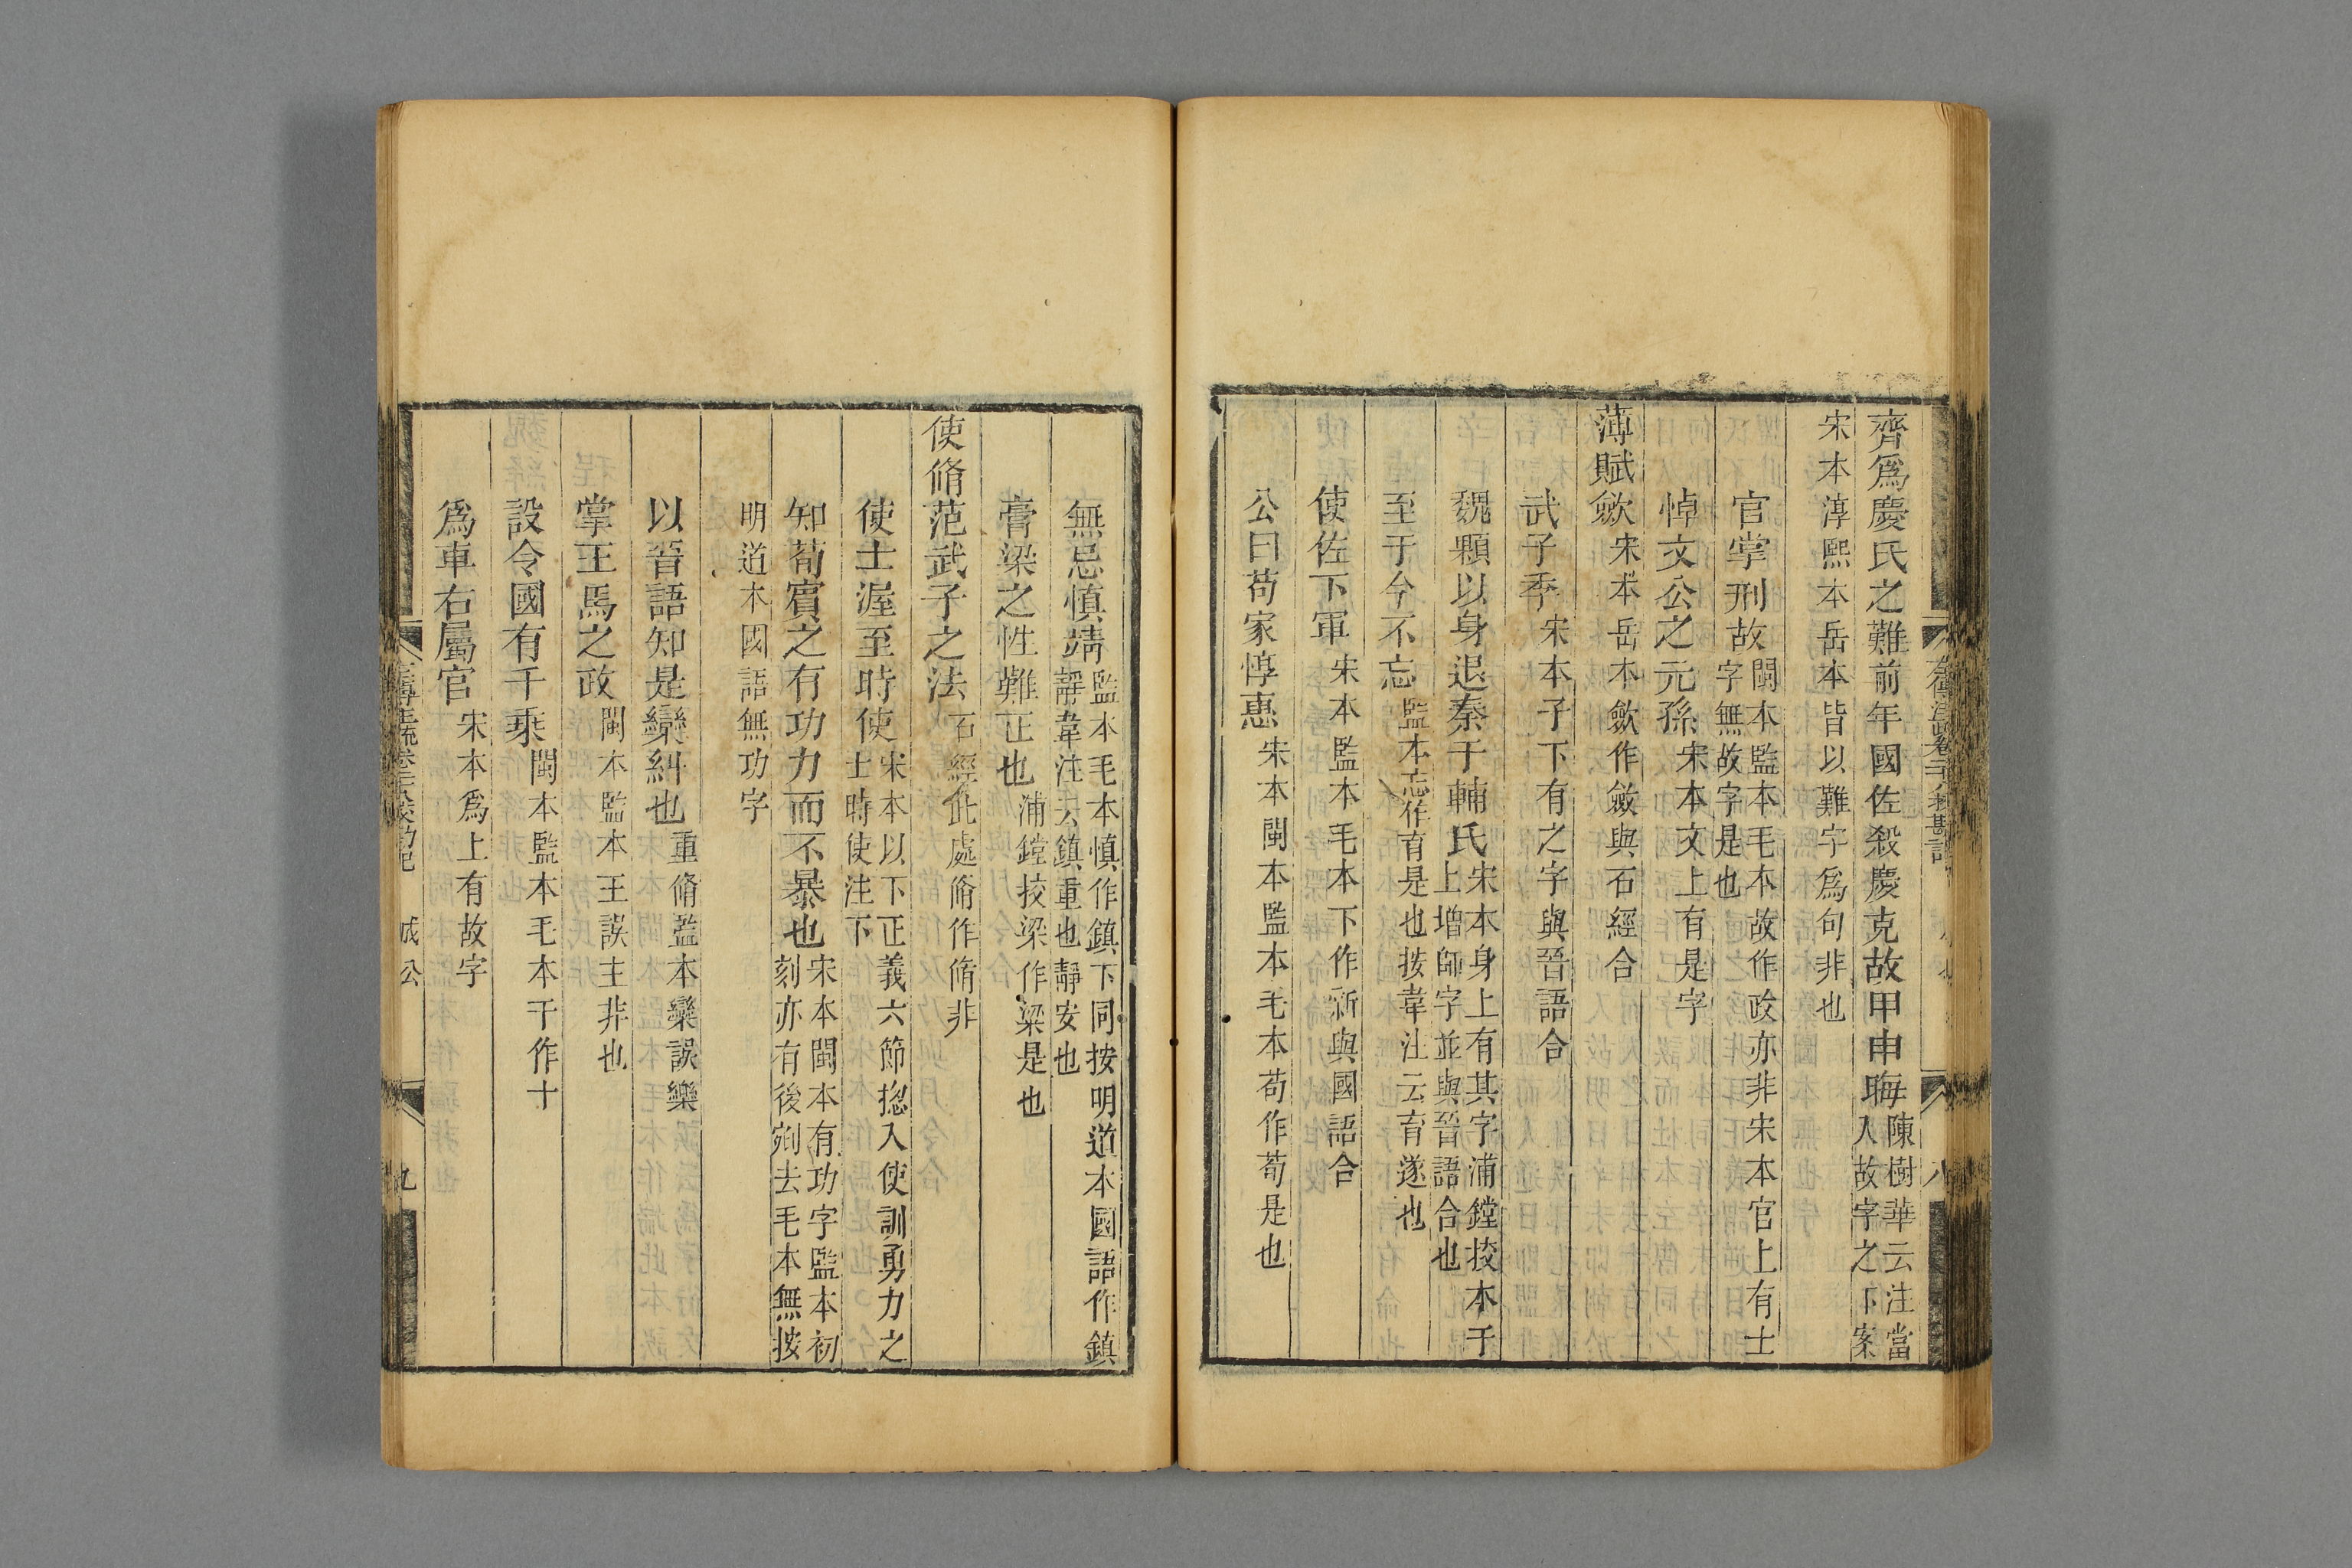 齊爲慶氏之難前年國佐殺慶克故甲申晦陳樹華云注當
人故字之下案
宋本淳熙本岳本皆以難字爲句非也
官掌刑故閩本監本毛本故作政亦非宋本官上有士
字無故字是也
悼文公之元孫宋本文上有是字
薄賦歛宋本岳本歛作斂與石經合
武子季宋本子下有之字與晉語合
魏顆以身退秦于輔氏宋本身上有其字浦鏜挍本于
上增師字並與晉語合也
至于今不忘監本忘作育是也按韋注云育遂也
使佐下軍宋本監本毛本下作新與國語合
公曰苟家惇惠宋本閩本監本毛本苟作荀是也
八
無忌慎靖監本毛本慎作鎮下同按明道本國語作鎮
靜韋注云鎮重也靜安也
膏梁之性難正也浦鏜挍梁作粱是也
使脩范武子之法石經此處脩作脩非
使士渥至時使宋本以下正義六節揔入使訓勇力之
士時使注下
知荀賓之有功力而不暴也宋本閩本有功字監本初
刻亦有後剜去毛本無按
明道本國語無功字
以晉語知是欒糾也重脩監本欒誤樂
掌王馬之政閩本監本王誤主非也
設令國有千乘閩本監本毛本千作十
爲車右屬官宋本爲上有故字
成公
九